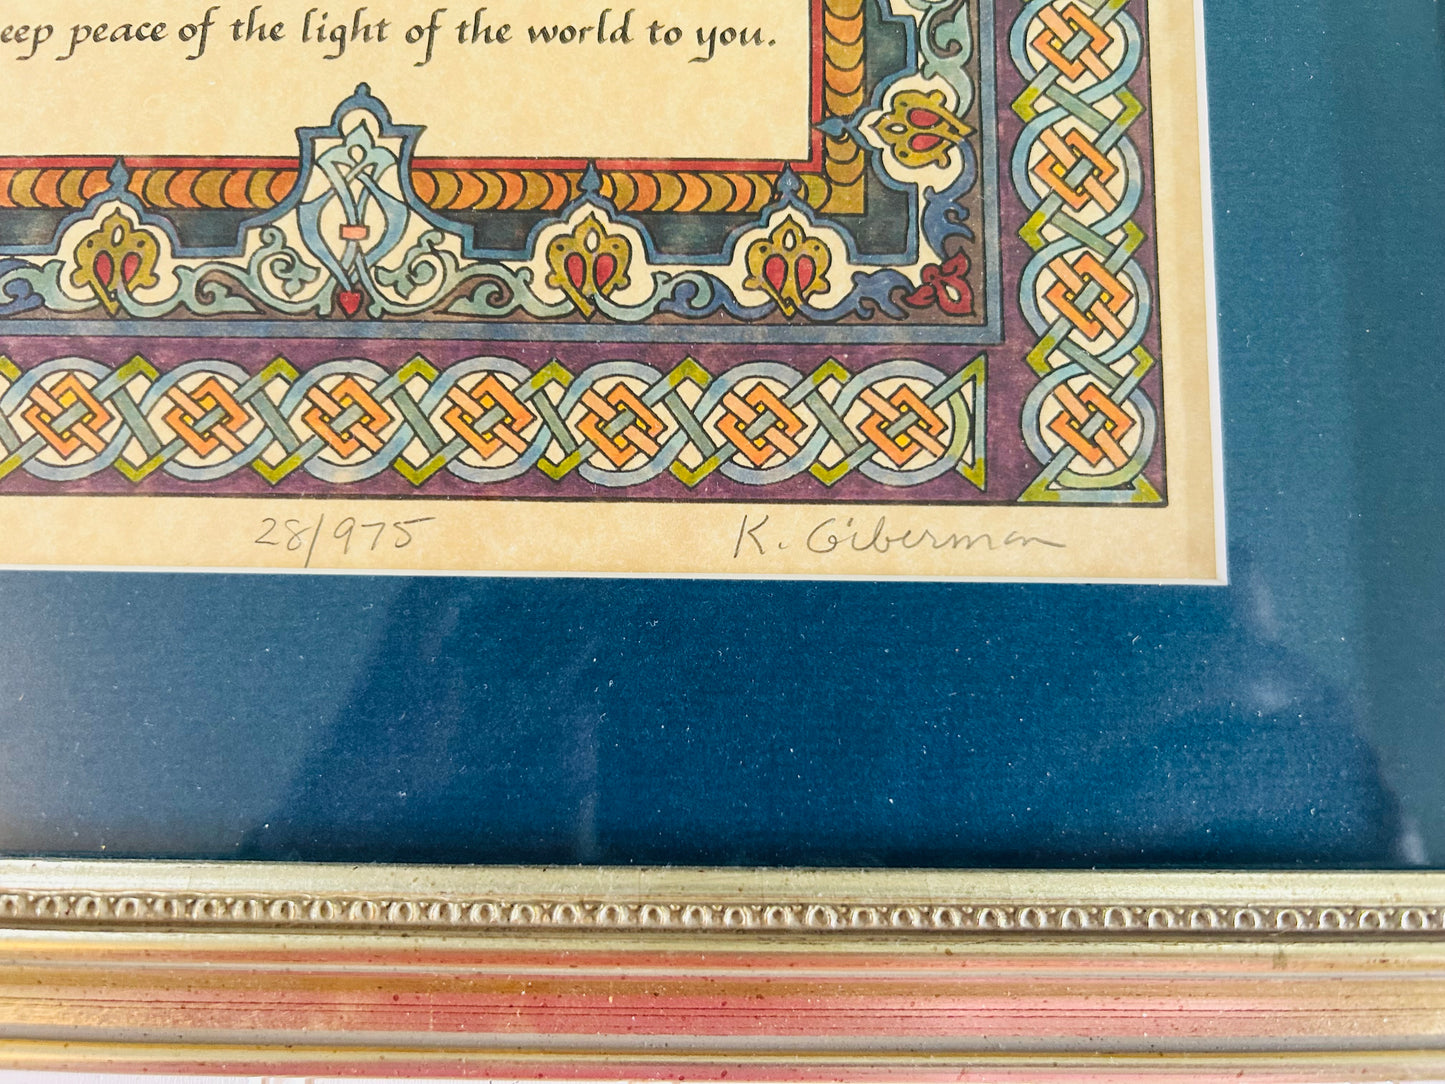 eep peace of the light of the world to you.
28/975 K. Giberman